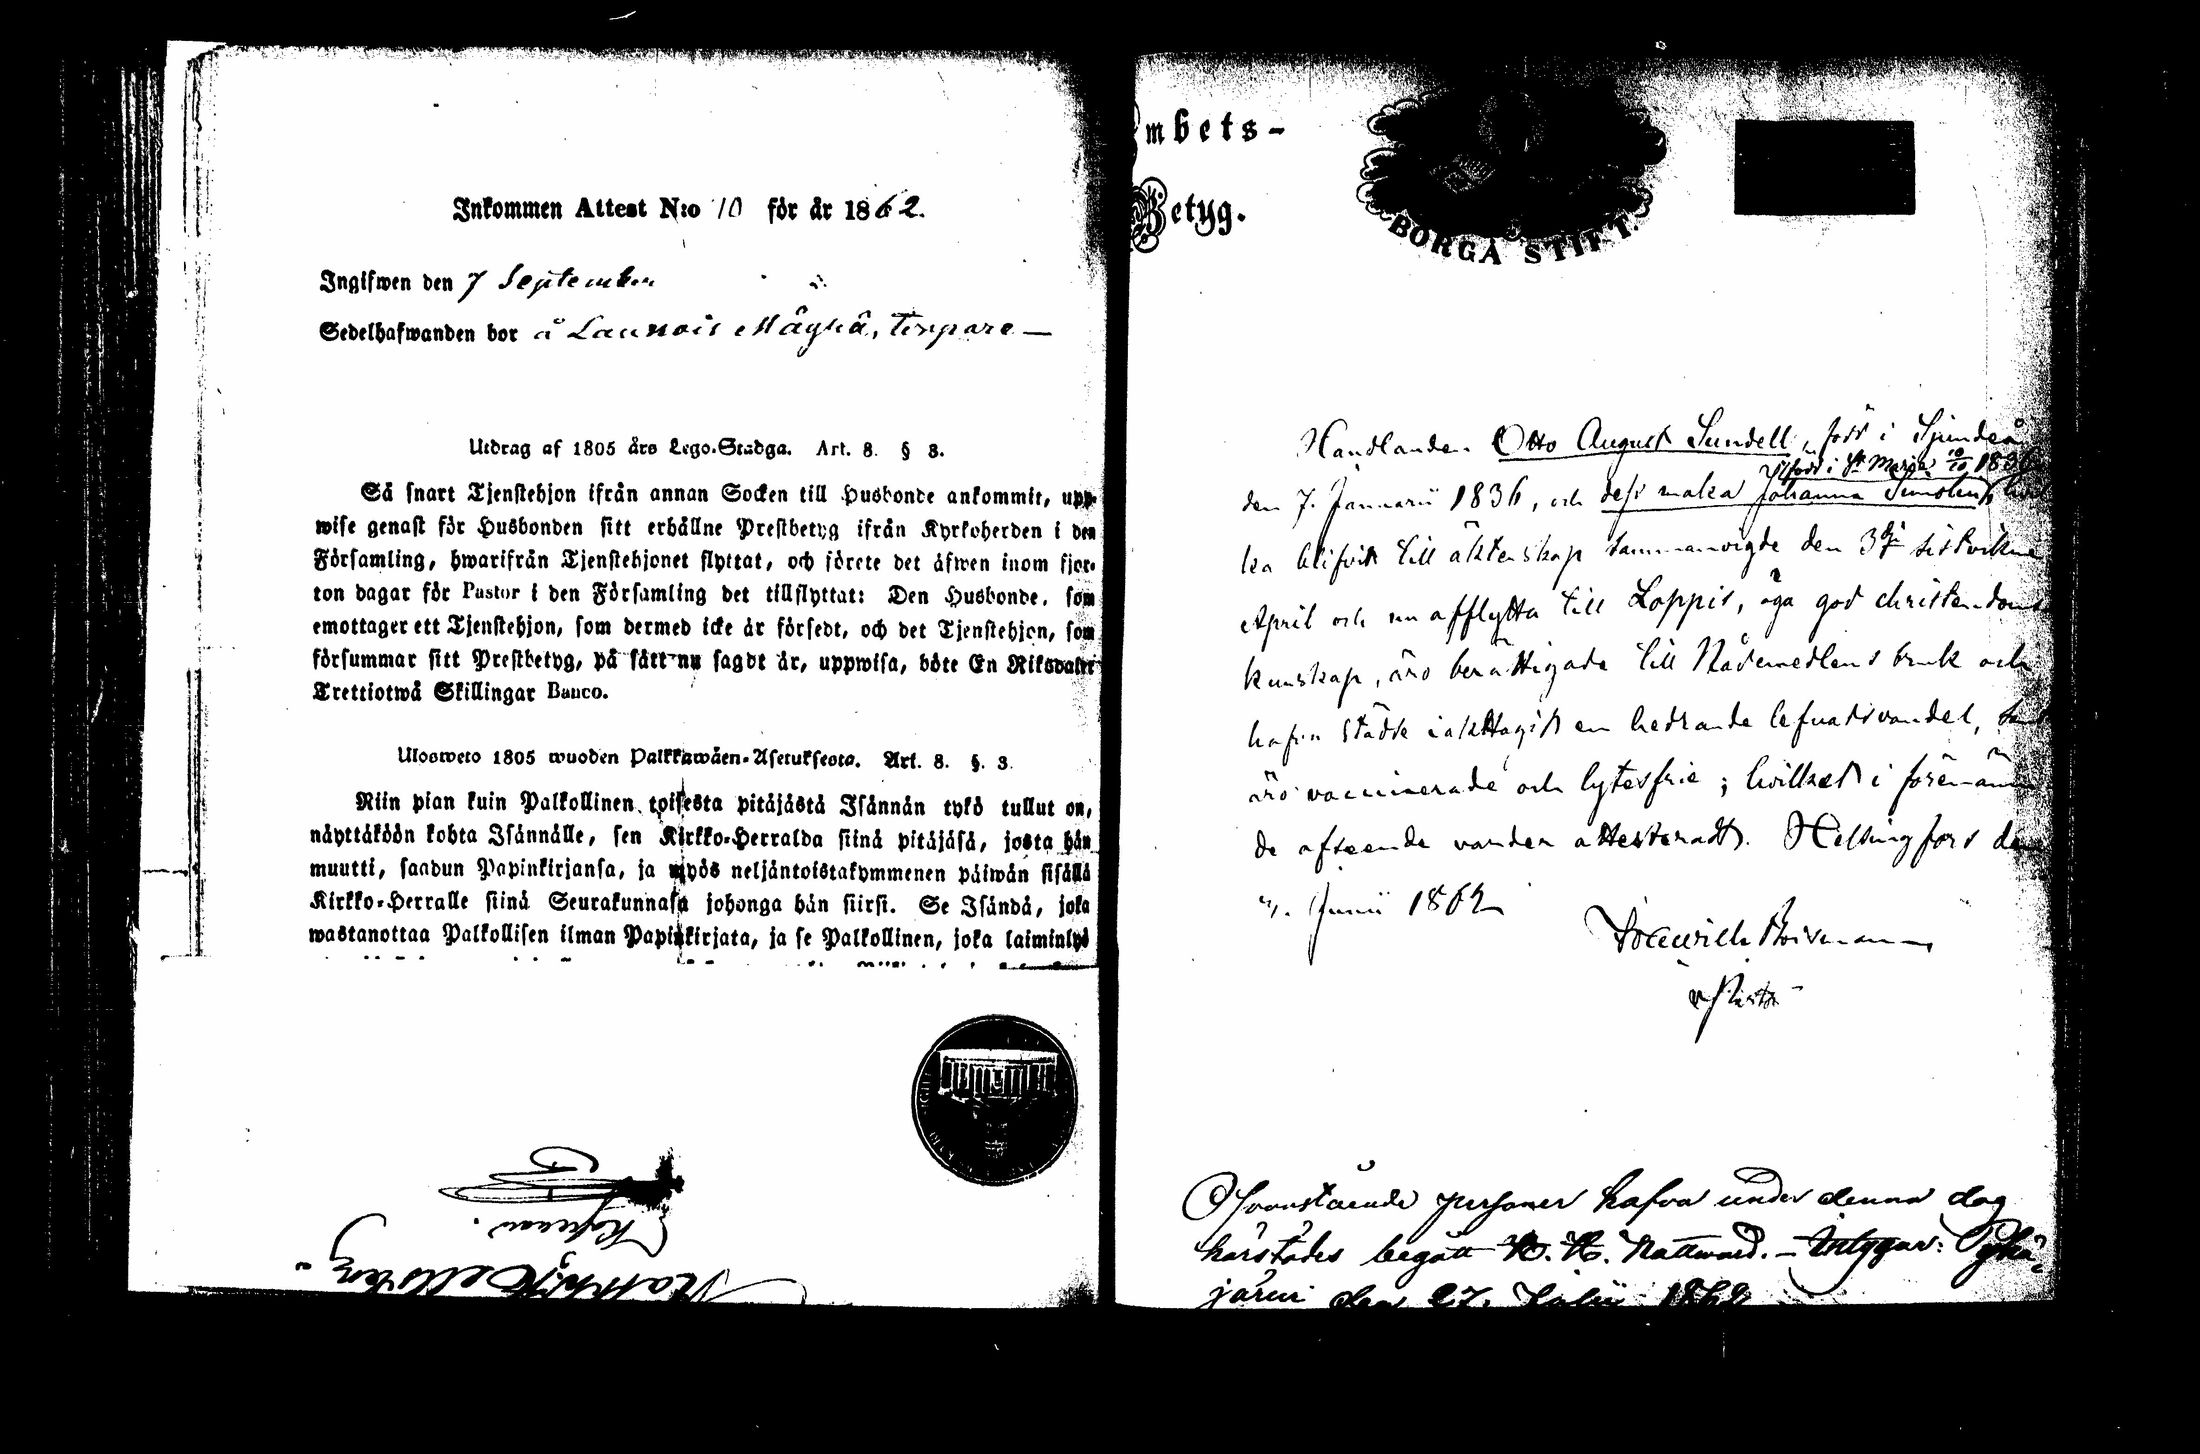 Inkommen Attest N:o 10 för år 1862.
Ingifwen den 7 September
Sedelhafwanden bor å Launois Mäyhä, torpare —
Utdrag af 1805 års Lego-Stadga. Art. 8. § 3.
Så snart Tjenstehjon ifrån annan Socken till Husbonde ankommit, upp-
wise genast för Husbonden sitt erhållne Prestbetyg ifrån Kyrkoherden i den
Församling, hwarifrån Tjenstehjonet flyttat, och förete det äfwen inom fjor-
ton dagar för Pastor i den Församling det tillflyttat: Den Husbonde, som
emottager ett Tjenstehjon, som dermed icke är försedt, och det Tjenstehjon, som
försummar sitt Prestbetyg, på sätt nu sagdt är, uppwisa, böte En Riksdaler
Trettiotwå Skillingar Banco.
Ulosweto 1805 wuoden Palkkawäen-Asetuksesta. Art. 8. §. 3.
Niin pian kuin Palkollinen toisesta pitäjästä Isännän tykö tullut on,
näyttäköön kohta Isännälle, sen Kirkko-Herralda siinä pitäjäsä, josta hän
muutti, saadun Papinkirjansa, ja myös neljäntoistakymmenen päiwän sisällä
Kirkko-Herralle siinä Seurakunnasa johonga hän siirsi. Se Isändä, joka
wastanottaa Palkollisen ilman Papinkirjata, ja se Palkollinen, joka laiminlyö
mbets-
Betyg.
BORGÅ STIFT.
Handlanden Otto August Sundell, född i Sjundeå
född i St Maria 10/10 1836
den 7. Januarii 1836, och dess maka Johanna
ka blifvit till äktenskap sammanvigde den 3dje sistvikne
April och nu afflytta till Loppis, äga god christendoms
kunskap, äro berättigade till Nådemedlens bruk och
hafva städse iakttagit en hedrande lefnadsvandel, samt
äro vaccinerade och lytesfrie; hvilket i förenämn
de afseende varder attesteradt. Helsingfors den
Junii 1862
v. Pastor
Ofvanstående personer hafva under denna dag
härstädes begått H. H. Nattward. — Intygar: Pyhä-
järvi den 27. Julii 1862